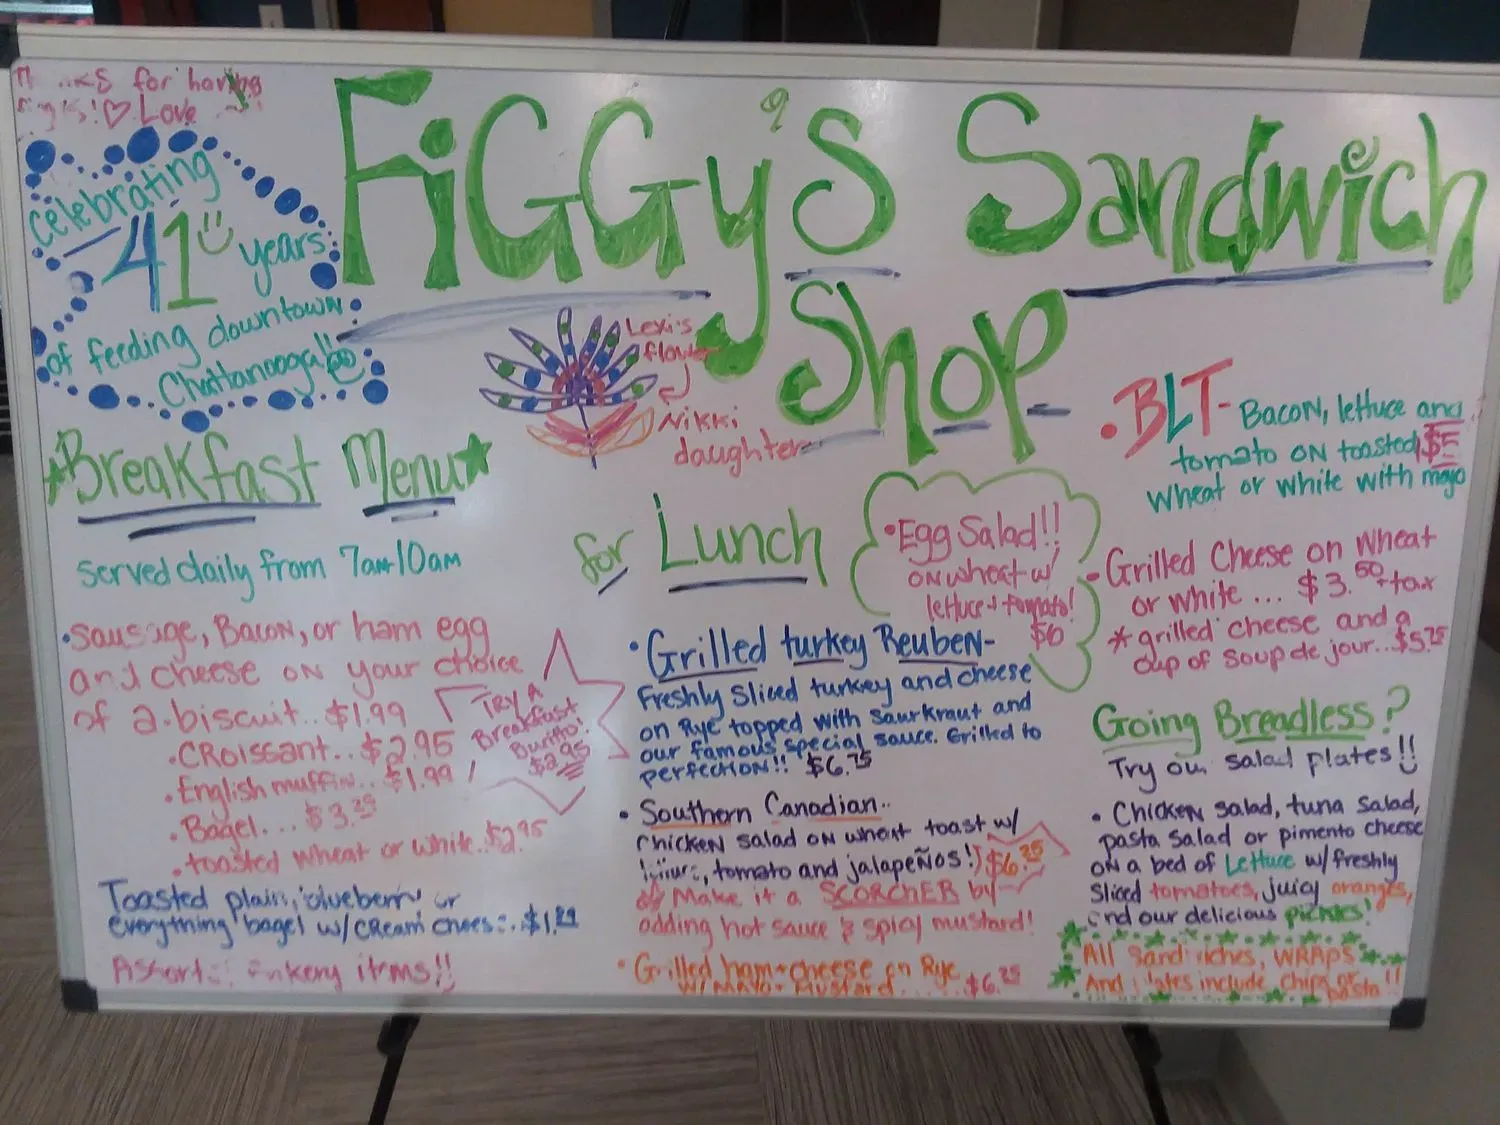 for having
Love
celebrating
41 years
of feeding downtown
Chattanooga!!
FiGGy's Sandwich
Shop
Lexi's
flower
Nikki
daughter
Breakfast Menu
served daily from 7am-10am
•sausage, Bacon, or ham egg
and cheese on your choice
of a•biscuit..$1.99
•CROissant...$2.95
•English muffin...$1.99
•Bagel...$3.25
•toasted wheat or white..$2.95
TRY A
Breakfast
Burrito!
$2.95
Toasted plain, blueberry or
everything bagel w/ cream
bakery items!!
for Lunch
•Egg Salad!!
on wheat w/
lettuce + tomato!
$6
•Grilled turkey Reuben-
Freshly sliced turkey and cheese
on Rye topped with saurkraut and
our famous special sauce. Grilled to
perfection!! $6.75
•Southern Canadian..
chicken salad on wheat toast w/
tomato and jalapeños! $6.25
Make it a SCORCHER by
adding hot sauce & spicy mustard!
•Grilled ham + cheese on Rye
w/ Mayo + Mustard........$6.25
•BLT- Bacon, lettuce and
tomato on toasted $5
wheat or white with mayo
•Grilled Cheese on wheat
or white... $3.50 + tax
*grilled cheese and a
cup of soup de jour...$5.75
Going Breadless?
Try our salad plates!!
•Chicken salad, tuna salad,
pasta salad or pimento cheese
on a bed of Lettuce w/ freshly
sliced tomatoes, juicy oranges,
and our delicious pickles!
All sandwiches, WRAPS
And plates include chips or
pasta!!